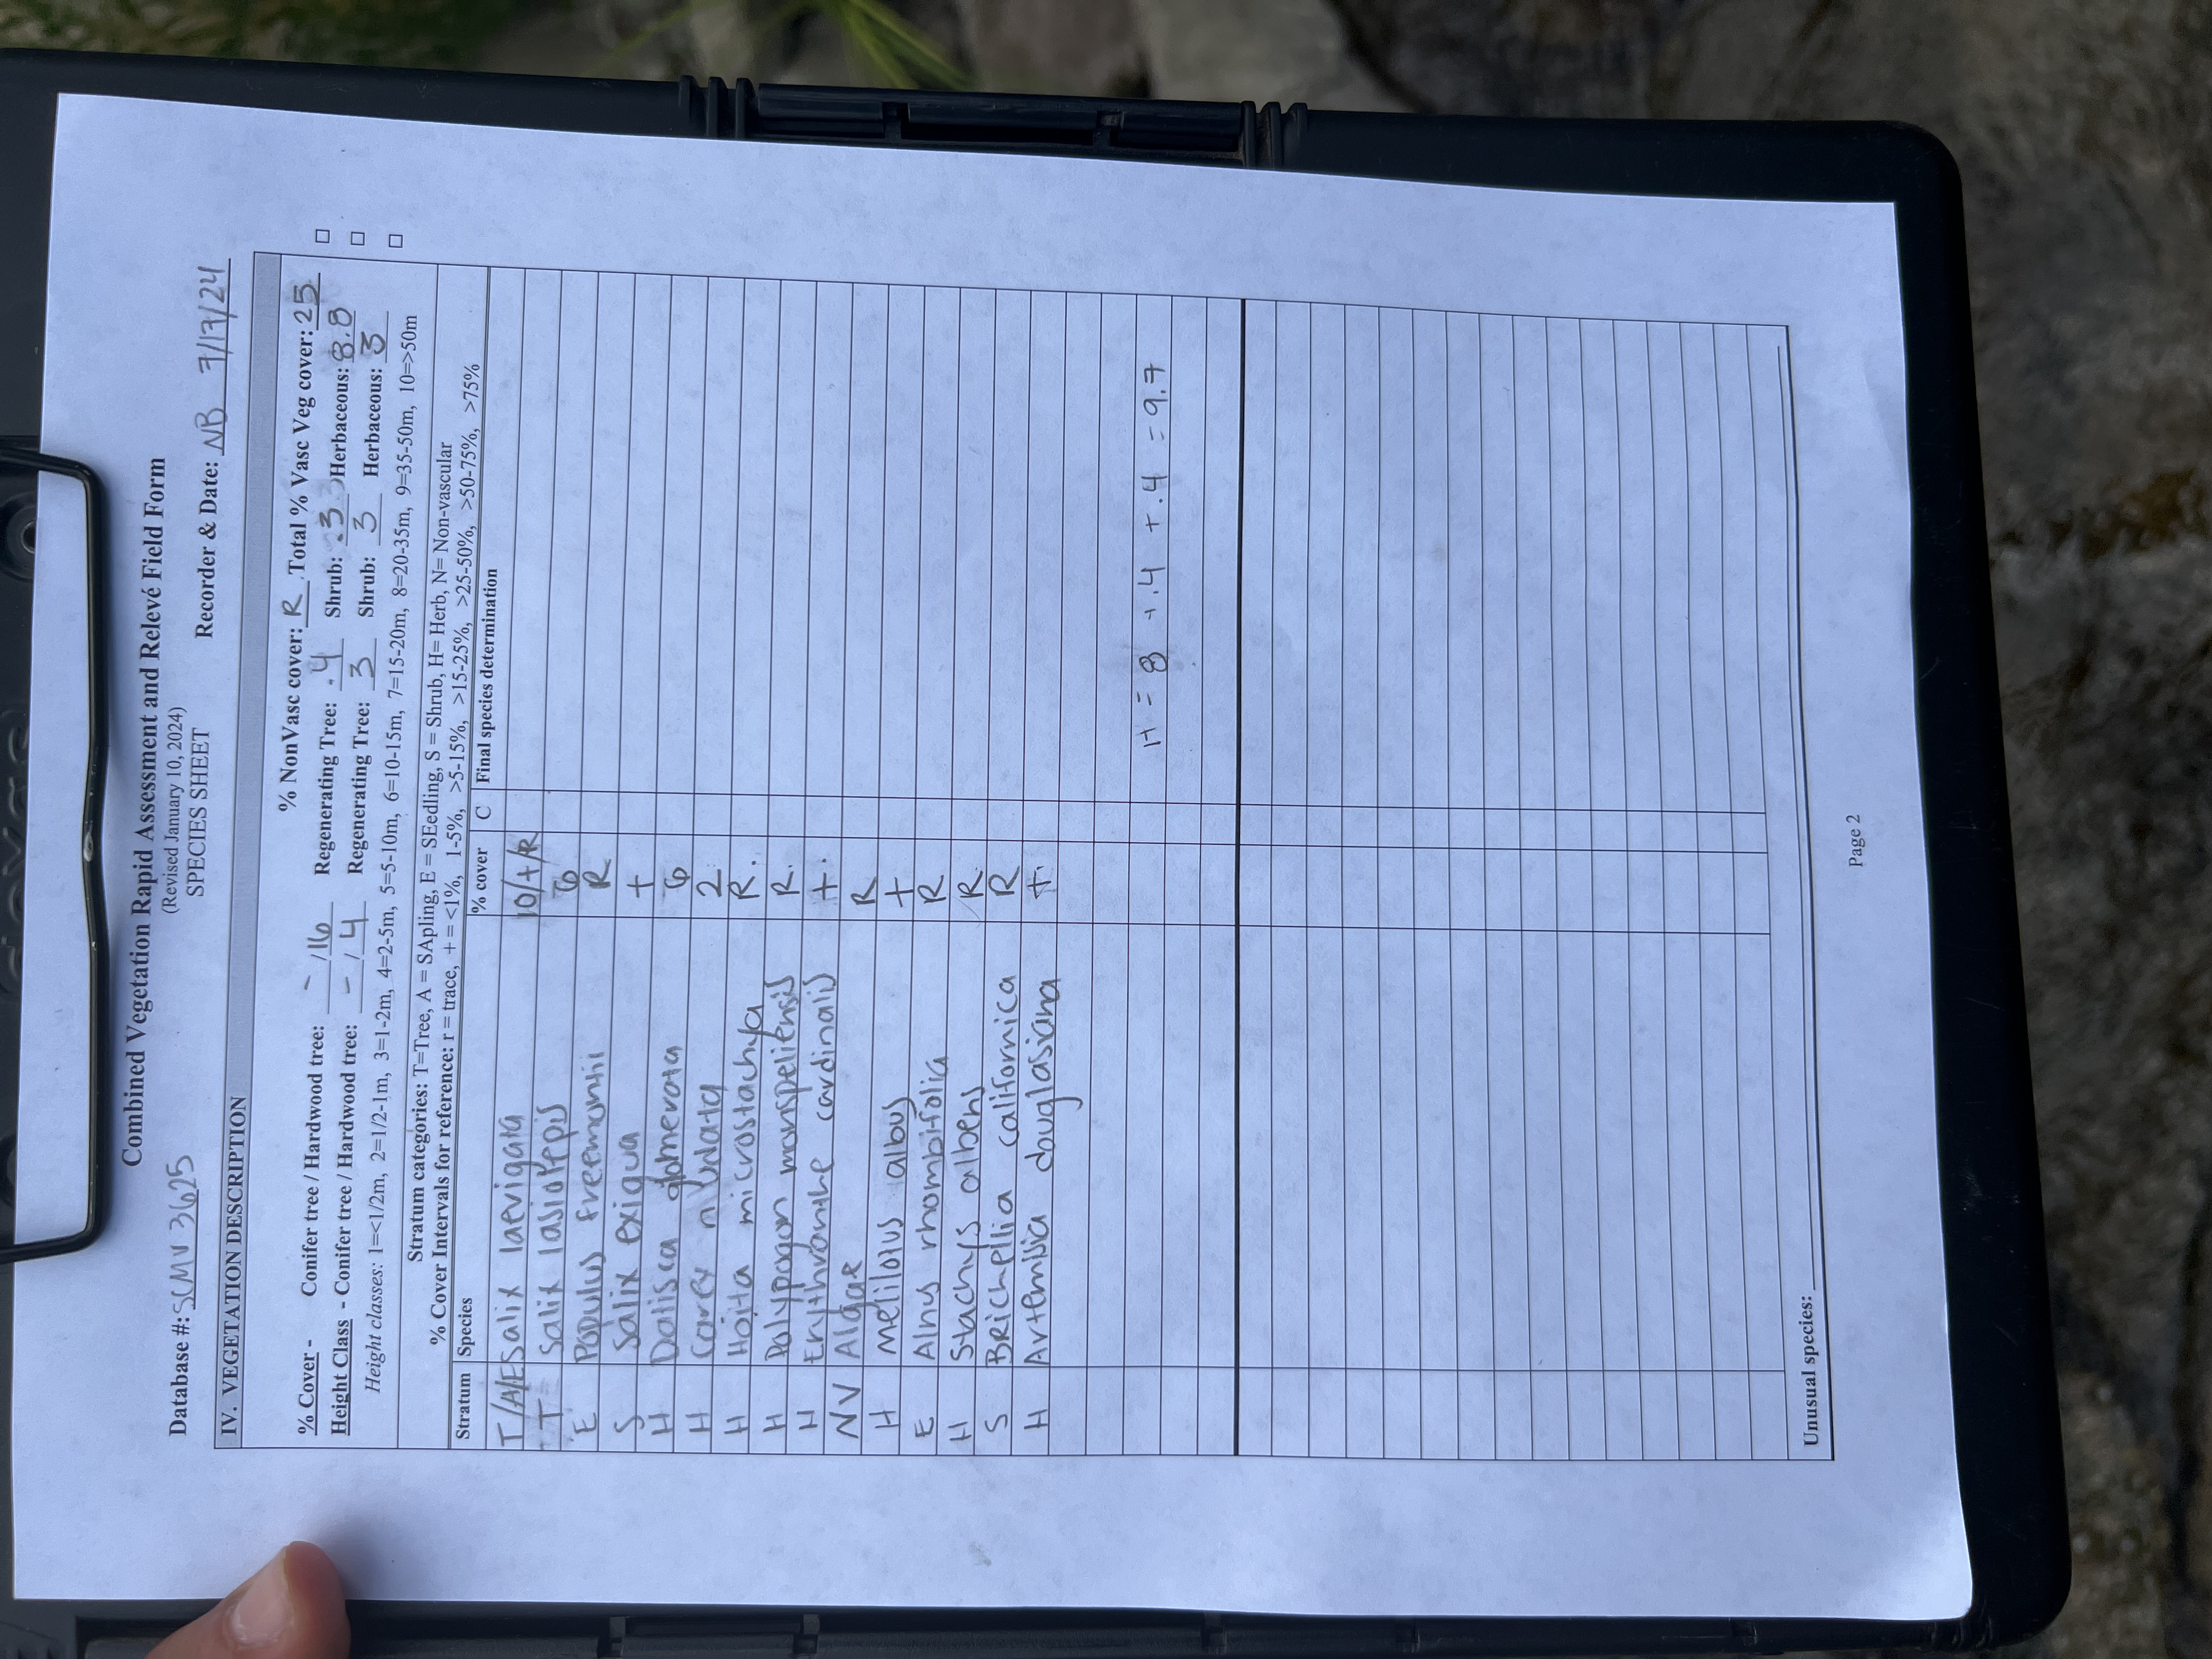 Combined Vegetation Rapid Assessment and Relevé Field Form
(Revised January 10, 2024)
SPECIES SHEET
Database #: SCMV3625 Recorder & Date: NB 7/17/24
IV. VEGETATION DESCRIPTION
% NonVasc cover: R Total % Vasc Veg cover: 25
% Cover - Conifer tree / Hardwood tree: - / 16 Regenerating Tree: .4 Shrub: .3 Herbaceous: 8.8
Height Class - Conifer tree / Hardwood tree: - / 4 Regenerating Tree: 3 Shrub: 3 Herbaceous: 3
Height classes: 1=<1/2m, 2=1/2-1m, 3=1-2m, 4=2-5m, 5=5-10m, 6=10-15m, 7=15-20m, 8=20-35m, 9=35-50m, 10=>50m
Stratum categories: T=Tree, A = SApling, E = SEedling, S = Shrub, H= Herb, N= Non-vascular
% Cover Intervals for reference: r = trace, + = <1%, 1-5%, >5-15%, >15-25%, >25-50%, >50-75%, >75%
Stratum Species % cover C Final species determination
T/A/E Salix laevigata 10/+/R
T Salix lasiolepis 6
E Populus freemontii R
S Salix exigua +
H Datisca glomerata 6
H Carex nudata 2
H Hoita microstachya R.
H Polypogon monspeliensis R.
H Erythranthe cardinalis +.
NV Algae R
H Melilotus albus +
E Alnus rhombifolia R
H Stachys albens R.
S Brichellia californica R
H Artemisia douglasiana +.
H = 8 + .4 + .4 = 9.7
Unusual species:
Page 2